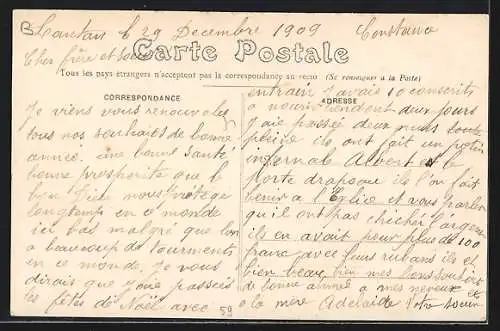 Lantan le 29 Decembre 1909 Constance
Cher frère et soeur
Carte Postale
Tous les pays étrangers n'acceptent pas la correspondance au recto (Se renseigner à la Poste)
CORRESPONDANCE
Je viens vous renouveler
tous nos souhaits de bonne
année. une bonne santé
bonne prosperité que le
bon Dieu nous protège
longtemp en ce monde
ici bas malgré que l'on
a beaucoup de tourments
en ce monde. Je vous
dirais que j'aie passeis
les fêtes de Noël avec
59
ADRESSE
entrain j'avais 10 conscrits
a nourir pendent deux jours
j'aie passée deux nuits toute
pleine ils ont fait un potin
infernale Albert est le
porte drapeau ils l'on fait
benir a l'Eglise et vous parler
qu'il ont pas chiché l'argent
ils en avait pour plus de 100
franc avec leurs rubans ils et
bien beau, mes bons souhaits
de bonne année a mes neveux et
a la mère Adelaide votre soeur